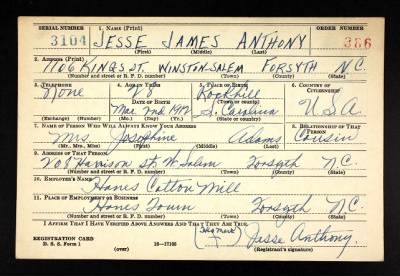 SERIAL NUMBER 1. NAME (Print) ORDER NUMBER
3104 JESSE JAMES ANTHONY 386
(First) (Middle) (Last)
2. ADDRESS (Print)
1106 KING ST. WINSTON-SALEM FORSYTH N.C.
(Number and street or R. F. D. number) (Town) (County) (State)
3. TELEPHONE 4. AGE IN YEARS 5. PLACE OF BIRTH 6. COUNTRY OF CITIZENSHIP
None 28 Rockhill
DATE OF BIRTH (Town or county)
Mar 2nd 1912 S. Carolina U.S.A
(Exchange) (Number) (Mo.) (Day) (Yr.) (State or country)
7. NAME OF PERSON WHO WILL ALWAYS KNOW YOUR ADDRESS 8. RELATIONSHIP OF THAT PERSON
Mrs. Josephine Adams Cousin
(Mr., Mrs., Miss) (First) (Middle) (Last)
9. ADDRESS OF THAT PERSON
208 Harrison St. W. Salem Forsyth N.C.
(Number and street or R. F. D. number) (Town) (County) (State)
10. EMPLOYER'S NAME
Hanes Cotton Mill
11. PLACE OF EMPLOYMENT OR BUSINESS
Hanes Town Forsyth N.C.
(Number and street or R. F. D. number) (Town) (County) (State)
I AFFIRM THAT I HAVE VERIFIED ABOVE ANSWERS AND THAT THEY ARE TRUE.
(His Mark)
X Jesse Anthony.
REGISTRATION CARD
D. S. S. Form 1 (over) 16—17105 (Registrant's signature)